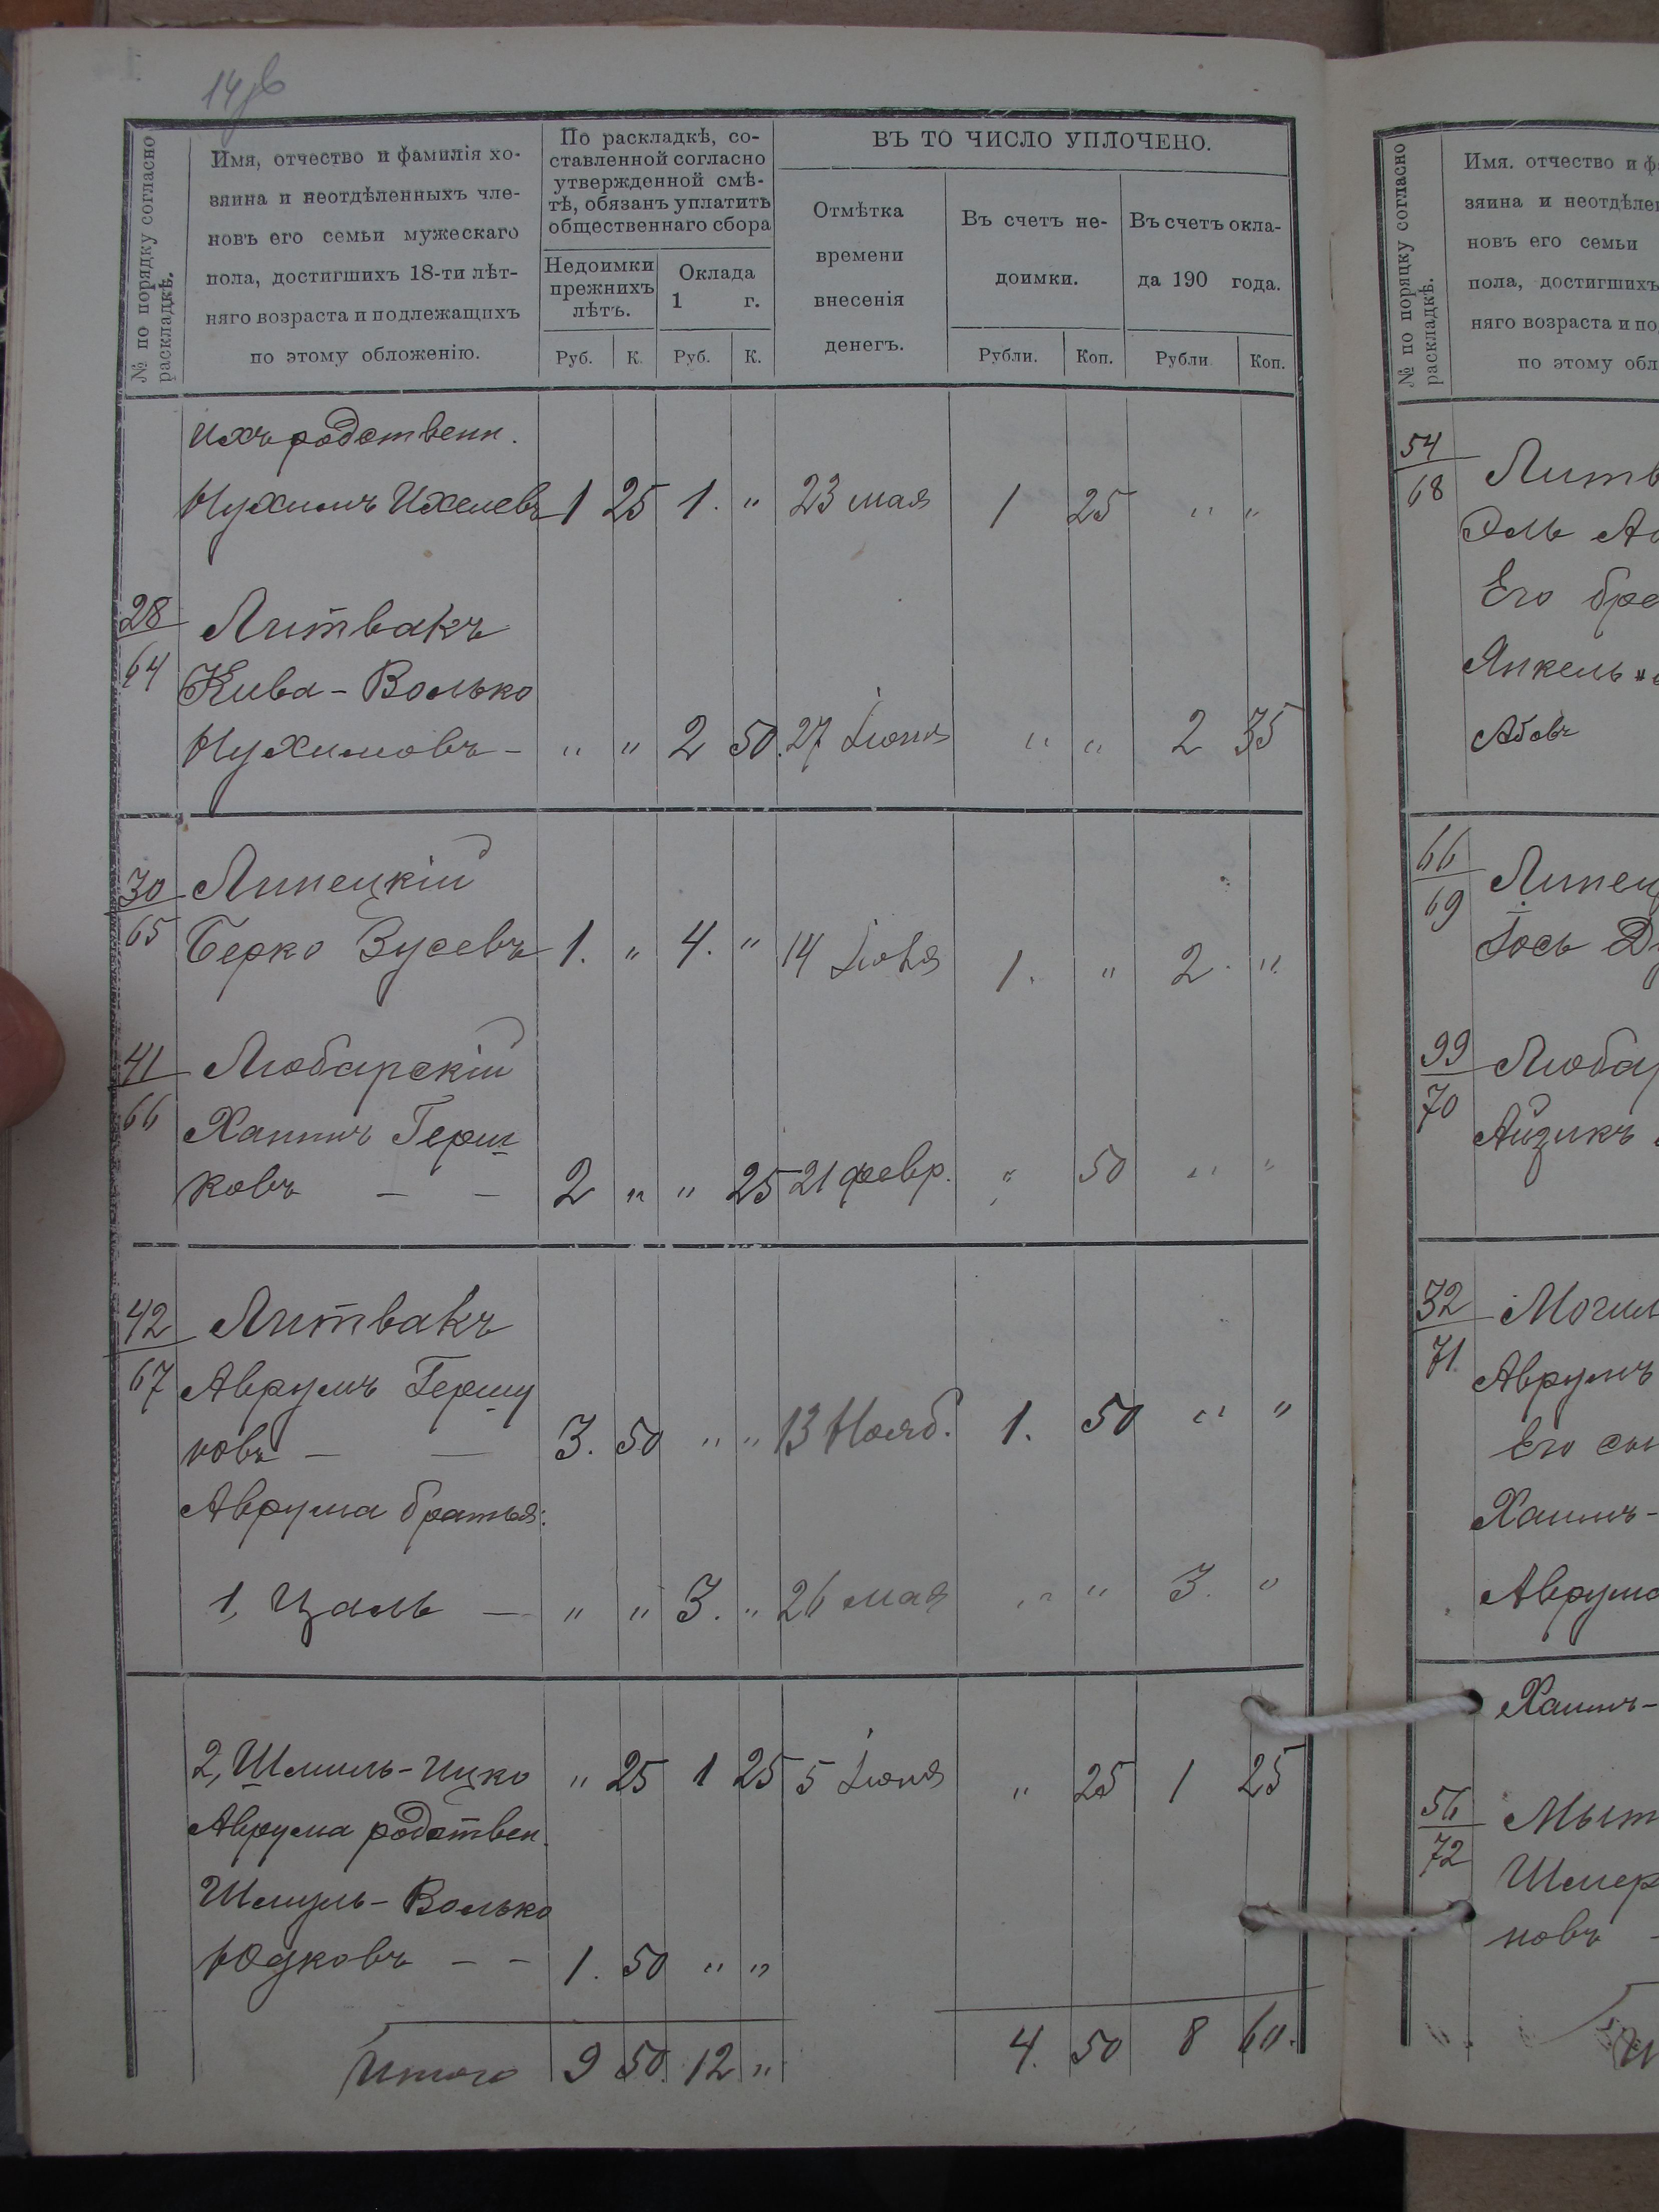 № по порядку согласно раскладкѣ.
Имя, отчество и фамилія хо-
зяина и неотдѣленныхъ чле-
новъ его семьи мужескаго
пола, достигшихъ 18-ти лѣт-
няго возраста и подлежащихъ
по этому обложенію.
По раскладкѣ, со-
ставленной согласно
утвержденной смѣ-
тѣ, обязанъ уплатить
общественнаго сбора
Недоимки
прежнихъ
лѣтъ.
Оклада
1 г.
Руб. К. Руб. К.
ВЪ ТО ЧИСЛО УПЛОЧЕНО.
Отмѣтка
времени
внесенія
денегъ.
Въ счетъ не-
доимки.
Въ счетъ окла-
да 190 года.
Рубли. Коп. Рубли Коп.
Ихъ родственн.
Нухимъ Ихелевъ 1 25 1. " 23 мая 1 25 " "
28 Литвакъ
64 Кива-Волько
Нухимовъ - " " 2 50. 27 Іюня " " 2 35
30 Липецкій
65 Берко Зусевъ 1. " 4. " 14 Іюля 1. " 2. "
41 Любарскій
66 Хаимъ Герш
ковъ - - 2 " " 25 21 февр. " 50 " "
42 Литвакъ
67 Аврумъ Гершу
новъ - - 3. 50 " " 13 Нояб. 1. 50 " "
Аврума братья:
1, Цаль - " " 3. " 26 мая " " 3. "
2, Шмиль-Ицко " 25 1 25 5 Іюня " 25 1 25
Аврума родствен.
Шмуль-Волько
Юдковъ - - 1. 50 " "
Итого 9 50. 12 " 4. 50 8 60.
№ по порядку согласно раскладкѣ.
Имя. отчество и ф
зяина и неотдѣле
новъ его семьи
пола, достигшихъ
няго возраста и по
по этому обл
54 Литв
68 Эль
Его бра
Янкель
Абовъ
66 Липец
69 Іось
99 Любар
70 Айзикъ
32 Могил
71. Аврумъ
Его сын
Хаимъ-
Аврума
Хаимъ-
56 Мыт
72 Шмер
новъ -